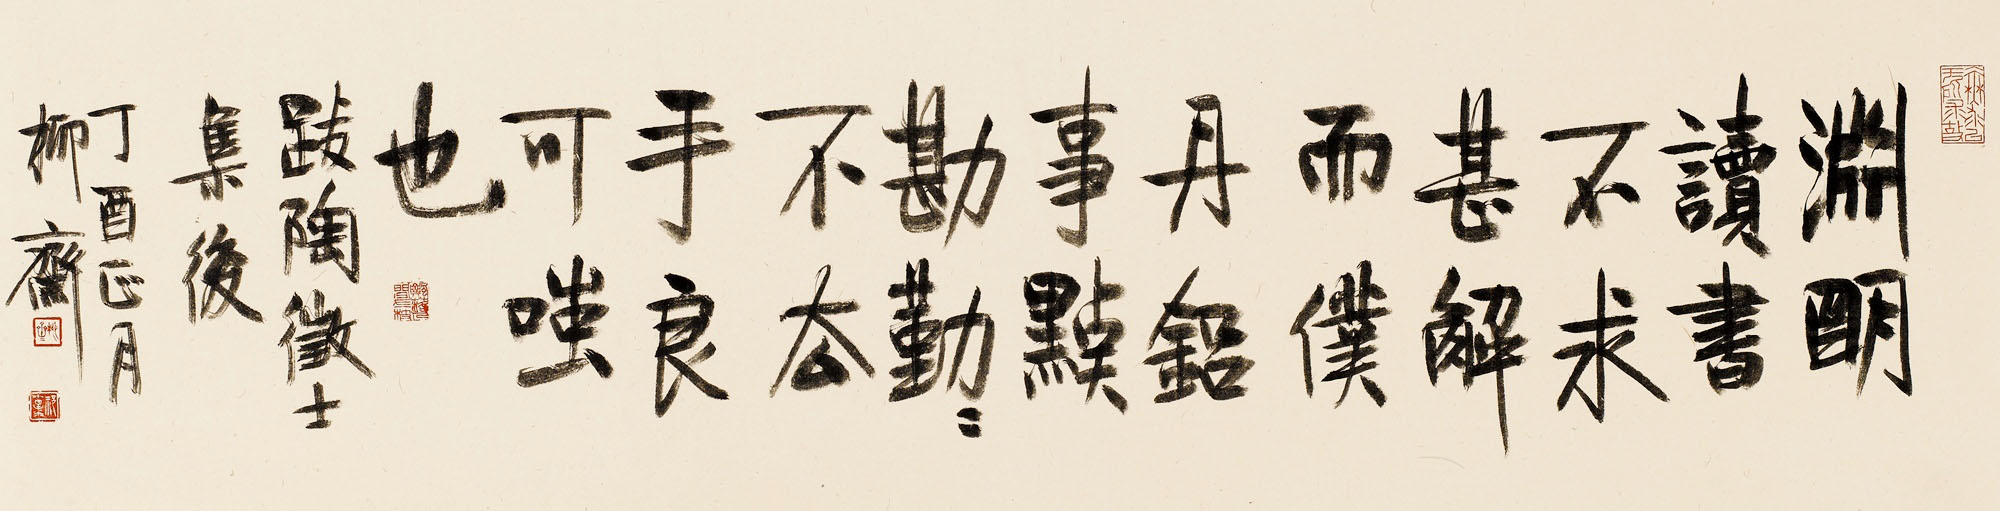 淵明
讀書
不求
甚解
而僕
丹鉛
事點
勘勤〻
不去
手良
可嗤
也
跋陶徵士
集後
丁酉正月
柳齋